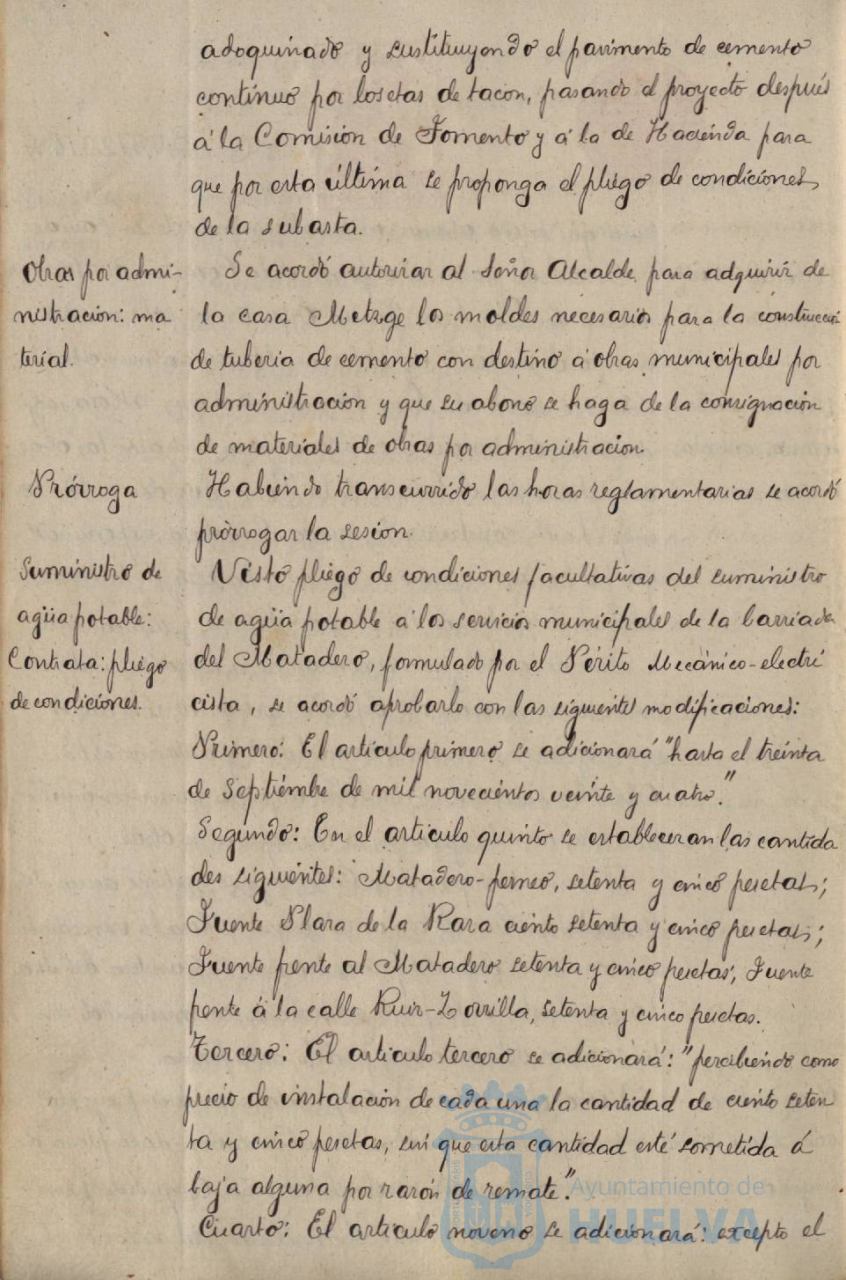 adoquinado y sustituyendo el pavimento de cemento
contínuo por losetas de tacon, pasando el proyecto después
á la Comisión de Fomento y á la de Hacienda para
que por esta última se proponga el pliego de condiciones
de la subasta.
Obras por admi-
nistracion: ma
terial.
Se acordó autorizar al Señor Alcalde para adquirir de
la casa Metzge los moldes necesarios para la construcció
de tuberia de cemento con destino á obras municipales por
administracion y que su abono se haga de la consignacion
de materiales de obras por administracion.
Prórroga
Habiendo transcurrido las horas reglamentarias se acordó
prórrogar la sesion.
Suministro de
agua potable:
Contrata: pliego
de condiciones.
Visto pliego de condiciones facultativas del suministro
de agua potable á los servicios municipales de la barriada
del Matadero, formulado por el Périto Mecánico-electri
cista, se acordó aprobarlo con las siguientes modificaciones:
Primero: El articulo primero se adicionará "hasta el treinta
de Septiembre de mil novecientos veinte y cuatro."
Segundo: En el articulo quinto se estableceran las cantida
des siguientes: Matadero-perneo, setenta y cinco pesetas;
Fuente Plaza de la Raza ciento setenta y cinco pesetas;
Fuente frente al Matadero setenta y cinco pesetas; Fuente
frente á la calle Ruiz-Zorrilla, setenta y cinco pesetas.
Tercero: El articulo tercero se adicionará: "percibiendo como
precio de instalación de cada una la cantidad de ciento seten
ta y cinco pesetas, sin que esta cantidad esté sometida á
baja alguna por razón de remate".
Cuarto: El articulo noveno se adicionará: excepto el
Ayuntamiento de
HUELVA